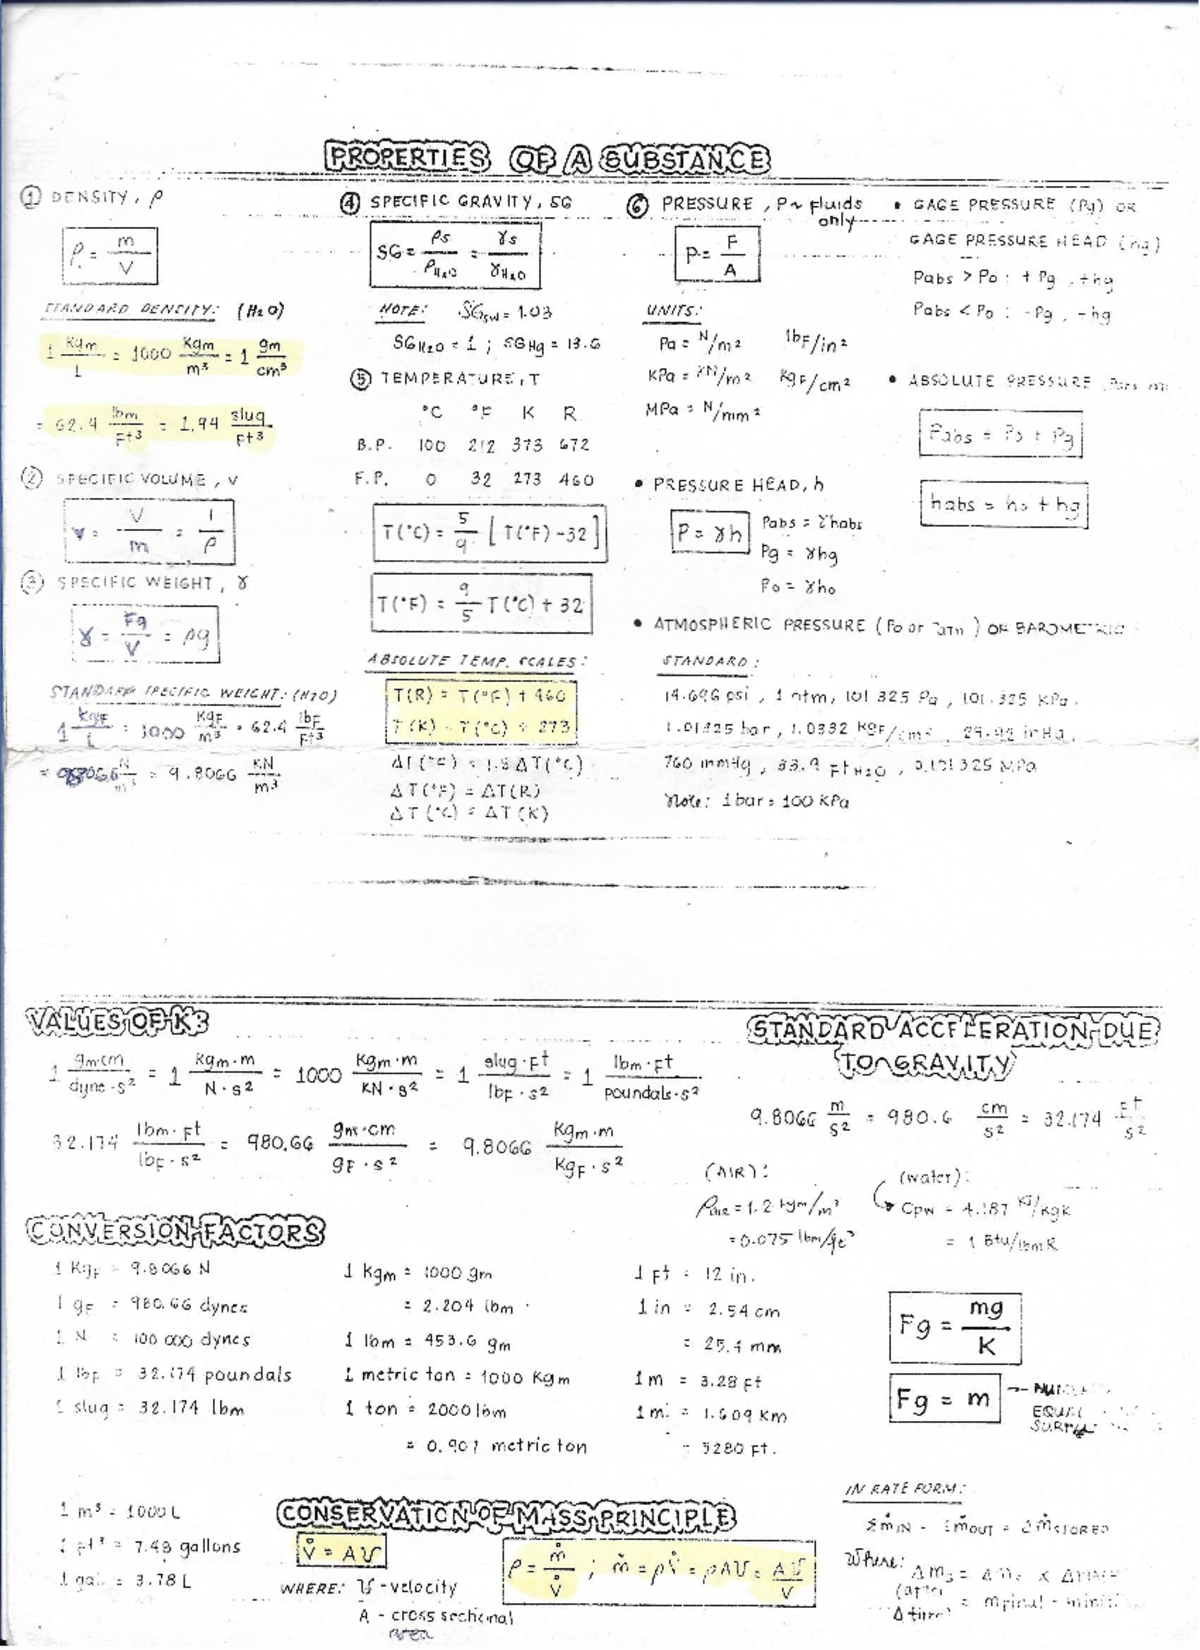 PROPERTIES OF A SUBSTANCE
① DENSITY, ρ
ρ = m/V
STANDARD DENSITY: (H₂O)
1 Kgm/L = 1000 Kgm/m³ = 1 gm/cm³
= 62.4 lbm/Ft³ = 1.94 slug/Ft³
② SPECIFIC VOLUME, v
v = V/m = 1/ρ
③ SPECIFIC WEIGHT, γ
γ = Fg/V = ρg
STANDARD SPECIFIC WEIGHT: (H2O)
1 KgF/L = 1000 KgF/m³ = 62.4 lbF/Ft³
= 9.8066 KN/m³
④ SPECIFIC GRAVITY, SG
SG = ρs/ρH₂O = γs/γH₂O
NOTE: SGsw = 1.03
SGH₂O = 1 ; SGHg = 13.6
⑤ TEMPERATURE, T
°C °F K R
B.P. 100 212 373 672
F.P. 0 32 273 460
T(°C) = 5/9 [T(°F) -32]
T(°F) = 9/5 T(°C) + 32
ABSOLUTE TEMP. SCALES:
T(R) = T(°F) + 460
T(K) = T(°C) + 273
ΔT(°F) = 1.8 ΔT(°C)
ΔT(°F) = ΔT(R)
ΔT(°C) = ΔT(K)
⑥ PRESSURE, P ~ fluids only
P = F/A
UNITS:
Pa = N/m² lbF/in²
KPa = KN/m² KgF/cm²
MPa = N/mm²
• PRESSURE HEAD, h
P = γh
Pabs = γhabs
Pg = γhg
Po = γho
• ATMOSPHERIC PRESSURE (Po or Patm) OR BAROMETRIC
STANDARD:
14.696 psi, 1 atm, 101 325 Pa, 101.325 KPa,
1.01325 bar, 1.0332 KgF/cm², 29.92 inHg,
760 mmHg, 33.9 FtH₂O, 0.101325 MPa
Note: 1 bar = 100 KPa
• GAGE PRESSURE (Pg) OR
GAGE PRESSURE HEAD (hg)
Pabs > Po : + Pg, + hg
Pabs < Po : - Pg, - hg
• ABSOLUTE PRESSURE
Pabs = Po + Pg
habs = ho + hg
VALUES OF K:
1 gm·cm/dyne·s² = 1 Kgm·m/N·s² = 1000 Kgm·m/KN·s² = 1 slug·Ft/lbF·s² = 1 lbm·Ft/poundals·s²
32.174 lbm·Ft/lbF·s² = 980.66 gm·cm/gF·s² = 9.8066 Kgm·m/KgF·s²
STANDARD ACCELERATION DUE
TO GRAVITY
9.8066 m/s² = 980.6 cm/s² = 32.174 Ft/s²
(AIR):
ρair = 1.2 kgm/m³
= 0.075 lbm/ft³
(water):
Cpw = 4.187 KJ/KgK
= 1 Btu/lbmR
CONVERSION FACTORS
1 KgF = 9.8066 N
1 gF = 980.66 dynes
1 N = 100 000 dynes
1 lbF = 32.174 poundals
1 slug = 32.174 lbm
1 Kgm = 1000 gm
= 2.204 lbm
1 lbm = 453.6 gm
1 metric ton = 1000 Kgm
1 ton = 2000 lbm
= 0.907 metric ton
1 Ft = 12 in.
1 in = 2.54 cm
= 25.4 mm
1 m = 3.28 Ft
1 mi = 1.609 KM
= 5280 FT.
Fg = mg/K
Fg = m
EQUAL
1 m³ = 1000 L
1 Ft³ = 7.48 gallons
1 gal = 3.78 L
CONSERVATION OF MASS PRINCIPLE
V̇ = Aυ
WHERE: υ - velocity
A - cross sectional
area
ρ = ṁ/V̇ ; ṁ = ρV̇ = ρAυ = Aυ/v
IN RATE FORM:
ΣṁIN - ΣṁOUT = ΣṁSTORED
Where: